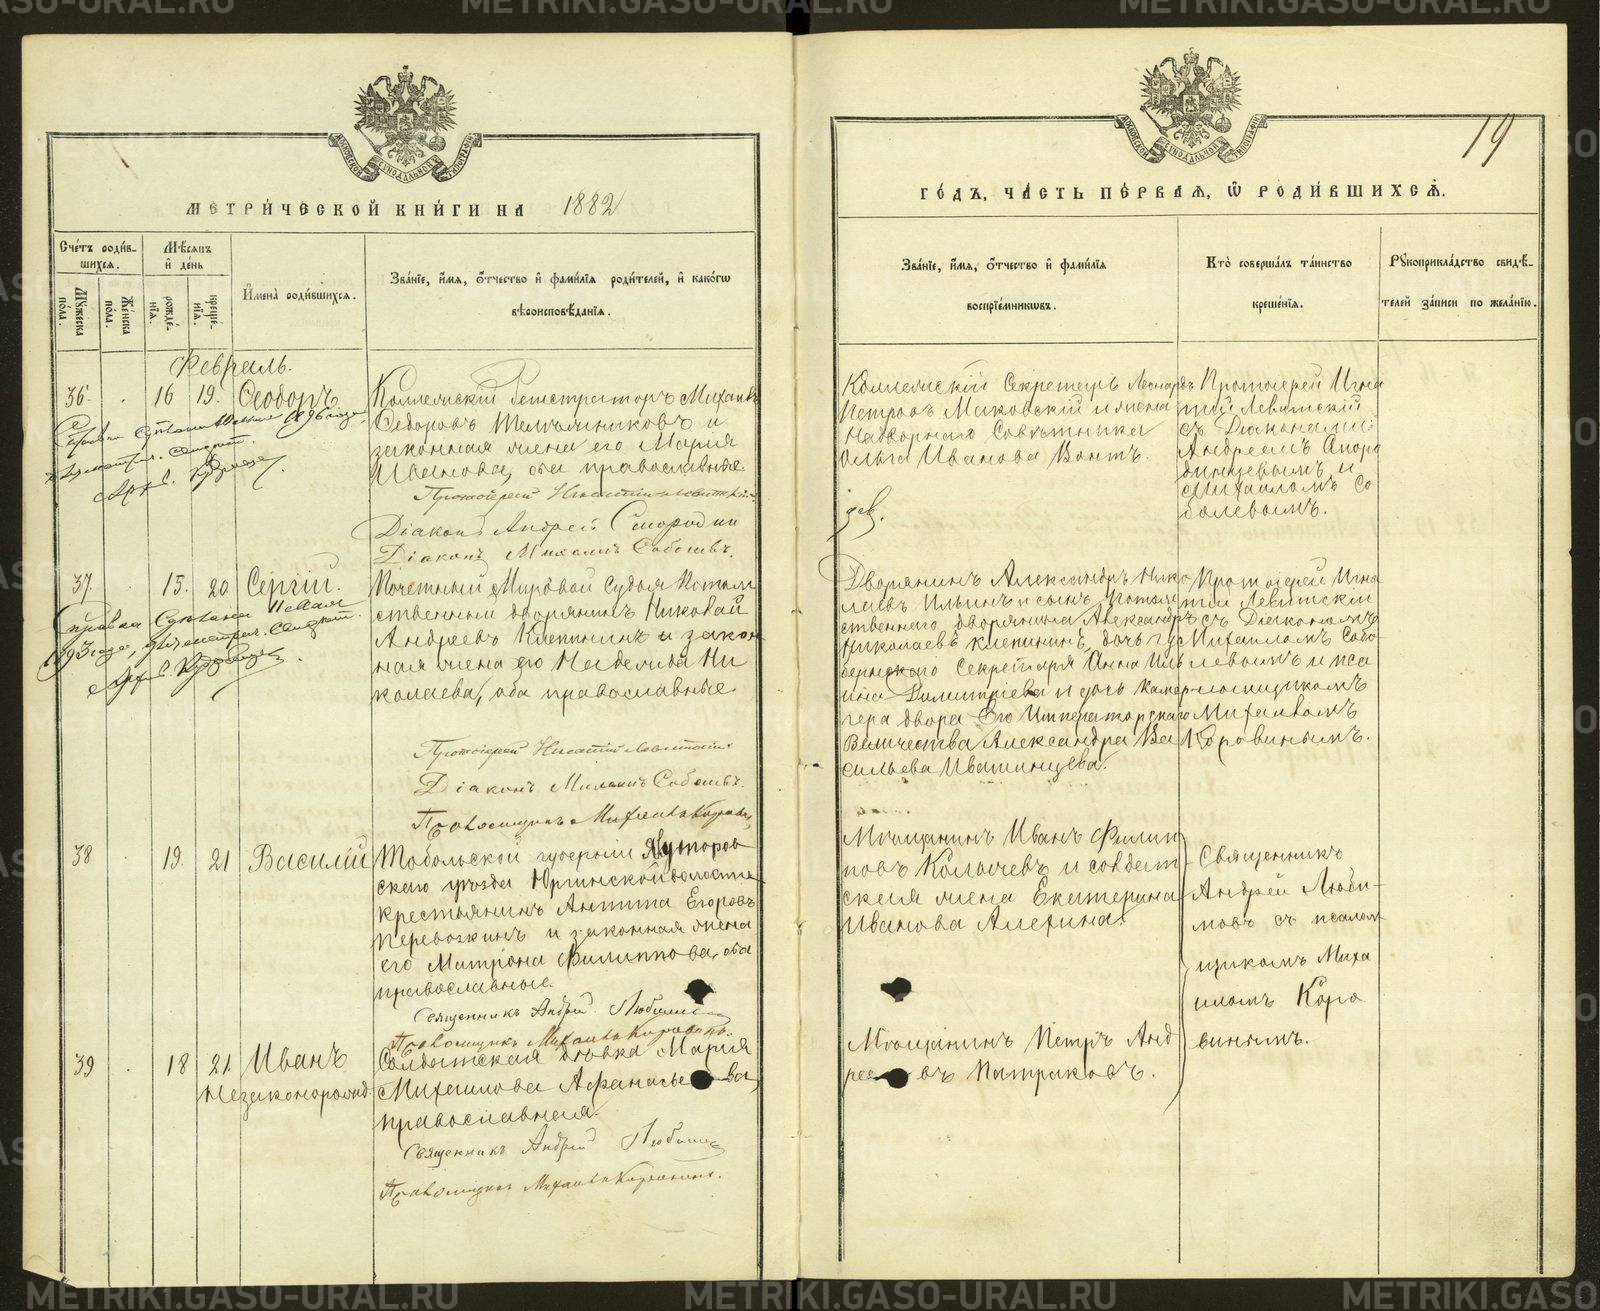 METRIKI.GASO-URAL.RU
МЕТРИ́ЧЕСКОЙ КНИ́ГИ НА 1882
Сче́тъ роди́вшихся.
Мѣсяцъ и де́нь
И́мена роди́вшихся.
Зва́нїе, и́мя, о́тчество и фами́лїя роди́телей, и како́гѡ
вѣроисповѣ́данїя.
Мꙋ́жеска по́ла.
Же́нска по́ла.
рожде́нїя.
креще́нїя.
Февраль.
36. 16 19. Ѳеодоръ
Коллежскій Регистраторъ Михаилъ
Ѳедоровъ Мельниковъ и
законная жена его Марія
Иванова, оба православные.
Протоіерей Игнатій Левитскій
Діаконъ Андрей Смородин
Діаконъ Михаилъ Соболевъ.
37. 15. 20 Сергій.
Почетный Мировой Судья Потом
ственный дворянинъ Николай
Андреевъ Клепининъ и закон
ная жена его Надежда Ни
колаева, оба православные
Протоіерей Игнатій Левитскій
Діаконъ Михаилъ Соболевъ.
Псаломщикъ Михаилъ Коровинъ
38 19. 21 Василій
Тобольской губерніи Ялуторов
скаго уѣзда Юргинской волости
крестьянинъ Антипа Егоровъ
Перевозкинъ и законная жена
его Матрона Филиппова, оба
православные.
Священникъ Андрей Любимовъ
Псаломщикъ Михаилъ Коровинъ.
39 18 21. Иванъ
Незаконорожд
Солдатская дѣвка Марія
Михаилова Афанасьева,
православная.
Священникъ Андрей Любимовъ
Псаломщикъ Михаилъ Коровинъ.
19
ГО́ДЪ, ЧА́СТЬ ПЕ́РВАЯ, Ѡ РОДИ́ВШИХСЯ.
Зва́нїе, и́мя, о́тчество и фами́лїя
воспрїе́мниковъ.
Кто̀ соверша́лъ та́инство
креще́нїя.
Рꙋкоприкла́дство свидѣ́-
телей за́писи по жела́нїю.
Коллежскій Секретарь Леонардъ
Петровъ Маковскій и жена
Надворнаго Совѣтника
Ольга Иванова Вонтъ.
Протоіерей Игна
тій Левитскій
съ Діаконами:
Андреемъ Сморо
динцевымъ и
Михаиломъ Со
болевымъ.
Дворянинъ Александръ Нико
лаевъ Ильинъ и сынъ Потом
ственнаго дворянина Александръ
Николаевъ Клепининъ, дочь гу
бернскаго Секретаря Анна Иль
ина Димитріева и дочь камер-
гера двора Его Императорскаго
Величества Александра Ва
сильева Ивашинцева.
Протоіерей Игна
тій Левитскій
съ Діакономъ
Михаиломъ Собо
левымъ и пса
ломщикомъ
Михаиломъ
Коровинымъ.
Мѣщанинъ Иванъ Филип
повъ Колычевъ и солдат
ская жена Екатерина
Иванова Алехина.
Священникъ
Андрей Люби-
мовъ съ псалом
щикомъ Миха
иломъ Коро
винымъ.
Мѣщанинъ Петръ Анд
реевъ Патраковъ.